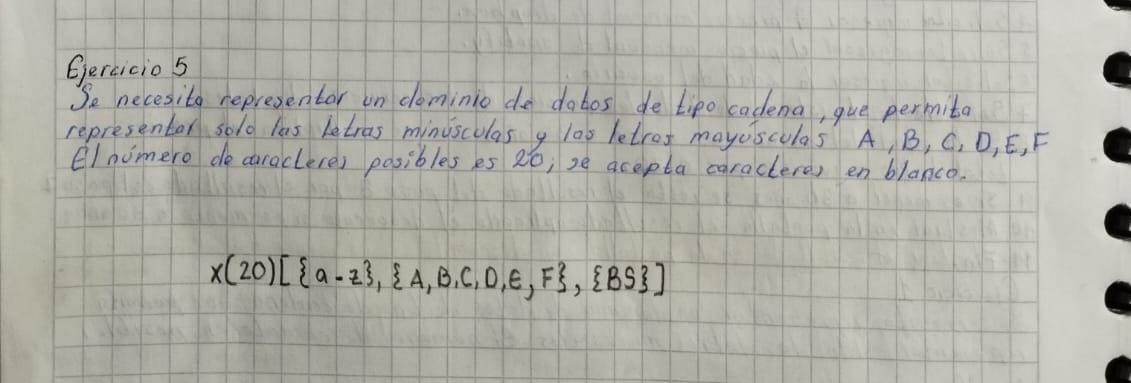 Ejercicio 5
Se necesita representar un dominio de datos de tipo cadena, que permita
representar solo las letras minúsculas y las letras mayúsculas A, B, C, D, E, F
El número de caracteres posibles es 20; se acepta caracteres en blanco.
X(20)[{a-z}, {A,B,C,D,E,F}, {BS}]